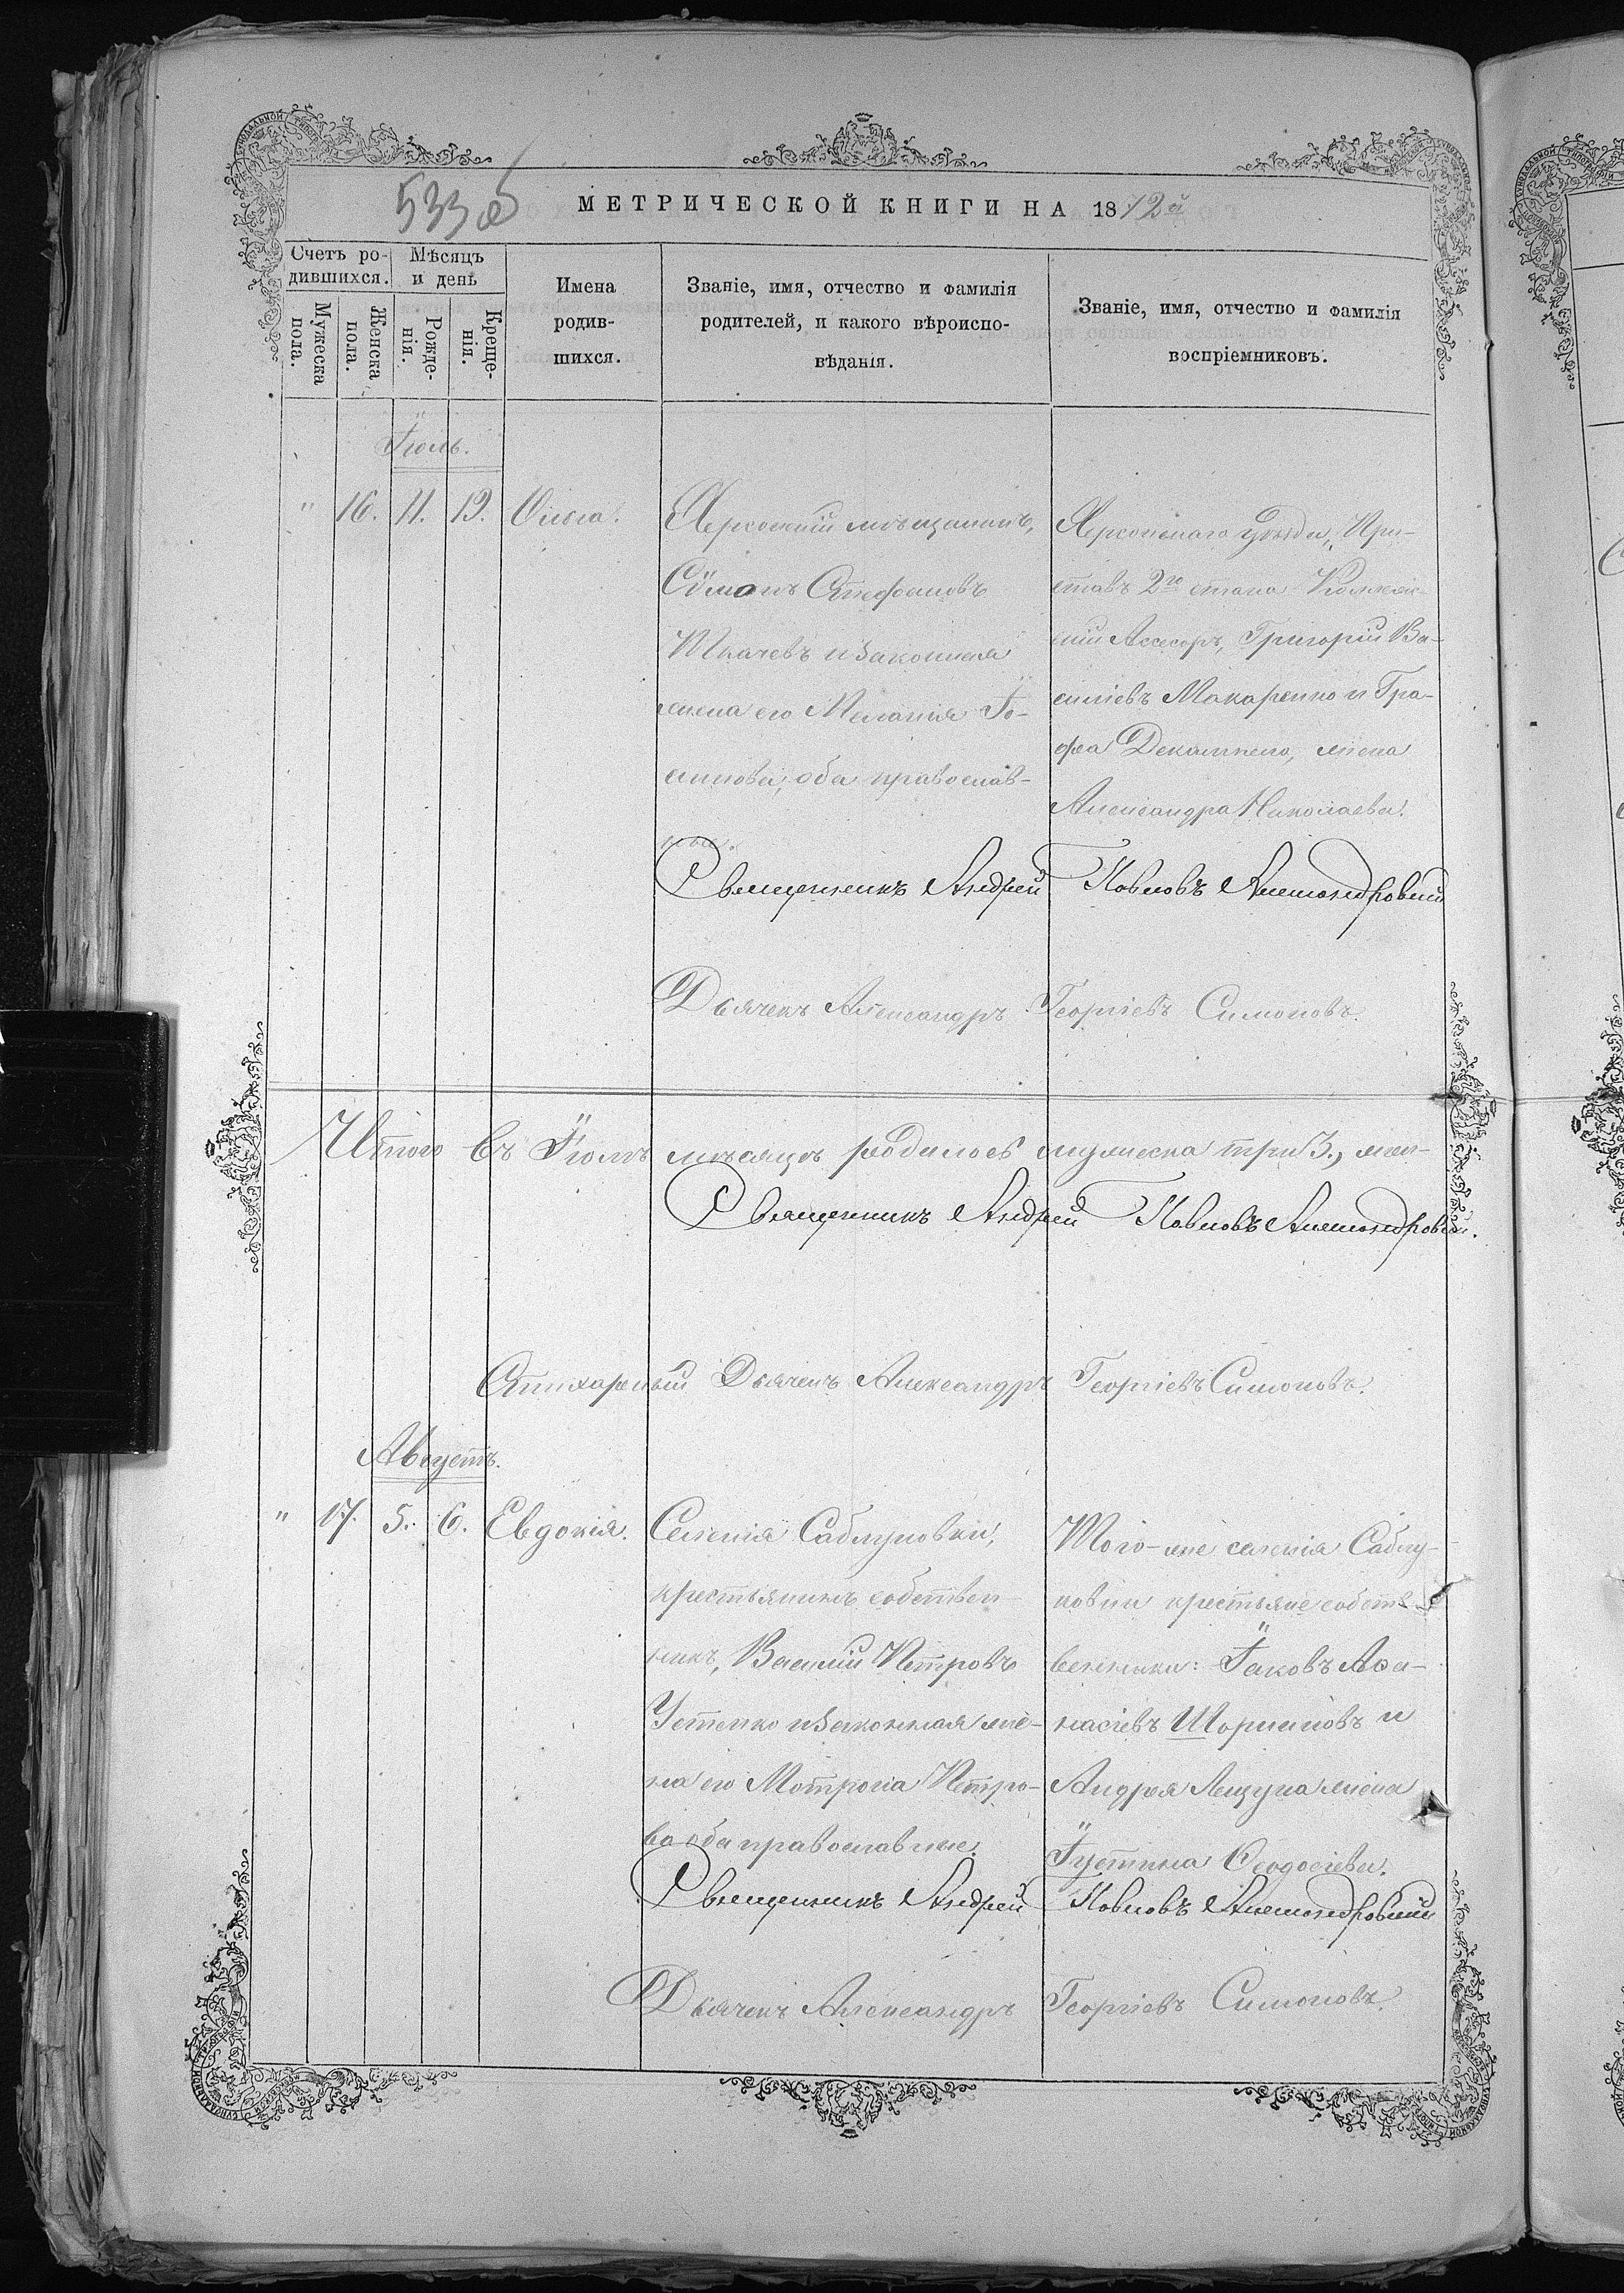 533 об
МЕТРИЧЕСКОЙ КНИГИ НА 1872й
Счетъ ро-
дившихся.
Мѣсяцъ
и день
Мужеска
пола.
Женска
пола.
Рожде-
нія.
Креще-
нія.
Имена
родив-
шихся.
Званіе, имя, отчество и фамилія
родителей, и какого вѣроиспо-
вѣданія.
Званіе, имя, отчество и фамилія
воспріемниковъ.
Іюль.
" 16. 11. 19. Ольга.
Херсонскій мѣщанинъ,
Сѵмонъ Стефановъ
Ткачевъ и законная
жена его Меланія Іо-
сипова, оба православ-
ные.
Херсонскаго уѣзда, При-
ставъ 2го стана Коллеж-
скій Ассесоръ, Григорій Ва-
силіевъ Макаренко и Гра-
фа Декампело, жена
Александра Николаева.
Священникъ Андрей Павловъ Александровскій
Дьячекъ Александръ Георгіевъ Симоновъ
Итого въ Іюлѣ мѣсяцѣ родилось мужеска три 3., жен-
Священникъ Андрей Павловъ Александровскій.
Стихарный Дьячекъ Александръ Георгіевъ Симоновъ.
Августъ.
" 17. 5. 6. Евдокія.
Селенія Саблуковки,
крестьянинъ собствен-
никъ, Василій Петровъ
Устенко и законная же-
на его Мотрона Петро-
ва оба православные.
Того-же селенія Саблу-
ковки крестьяне собст-
венники: Іаковъ Аѳа-
насіевъ Шориновъ и
Андрея Лещуна жена
Іустина Ѳеодосіева.
Священникъ Андрей Павловъ Александровскій
Дьячекъ Александръ Георгіевъ Симоновъ.